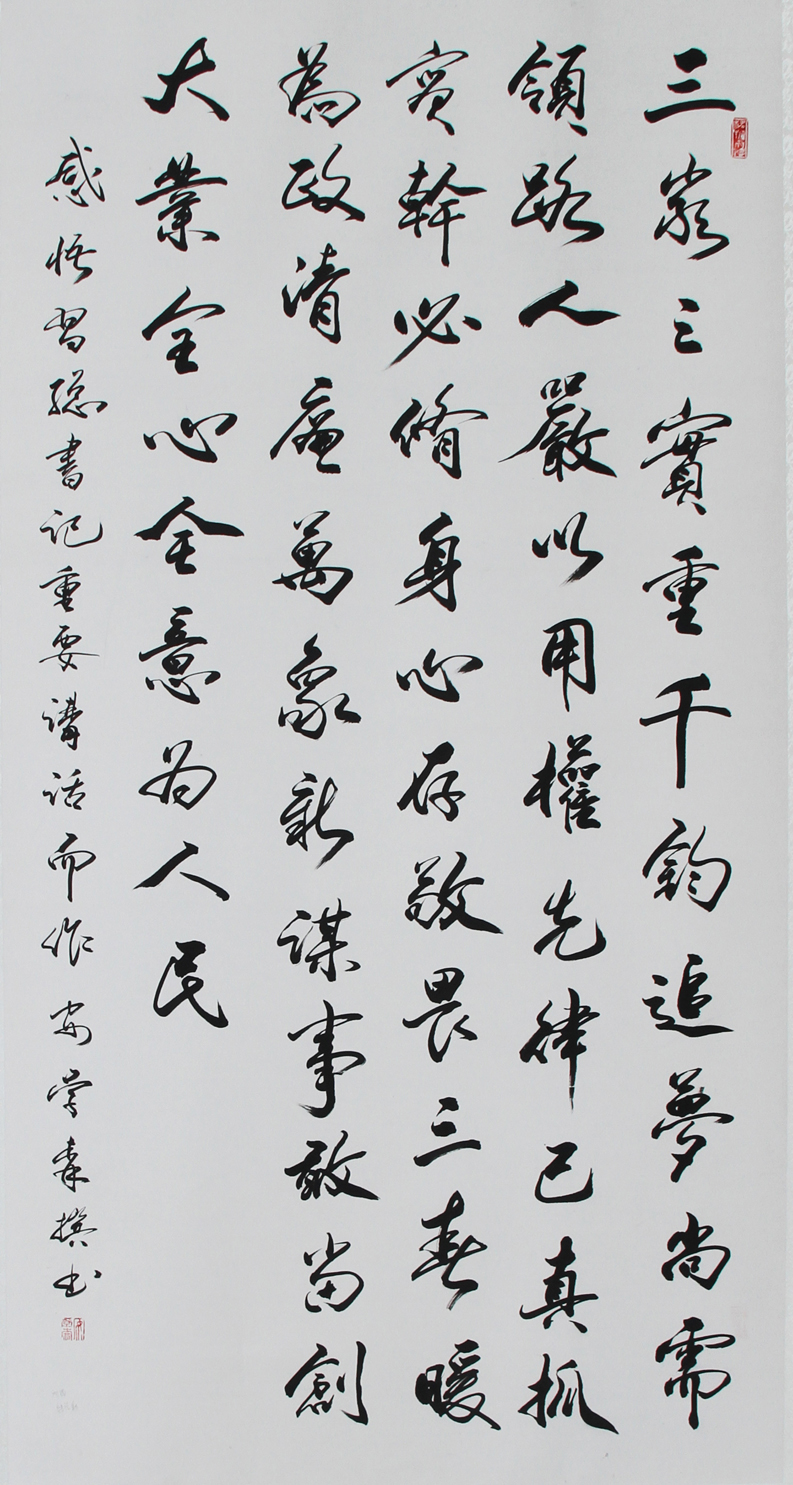 三嚴三實重千鈞追夢尚需
領路人嚴以用權先律己真抓
實幹必脩身心存敬畏三春暖
為政清廉萬象新謀事敢当創
大業全心全意为人民
感悟習總書記重要講话而作安学森撰书